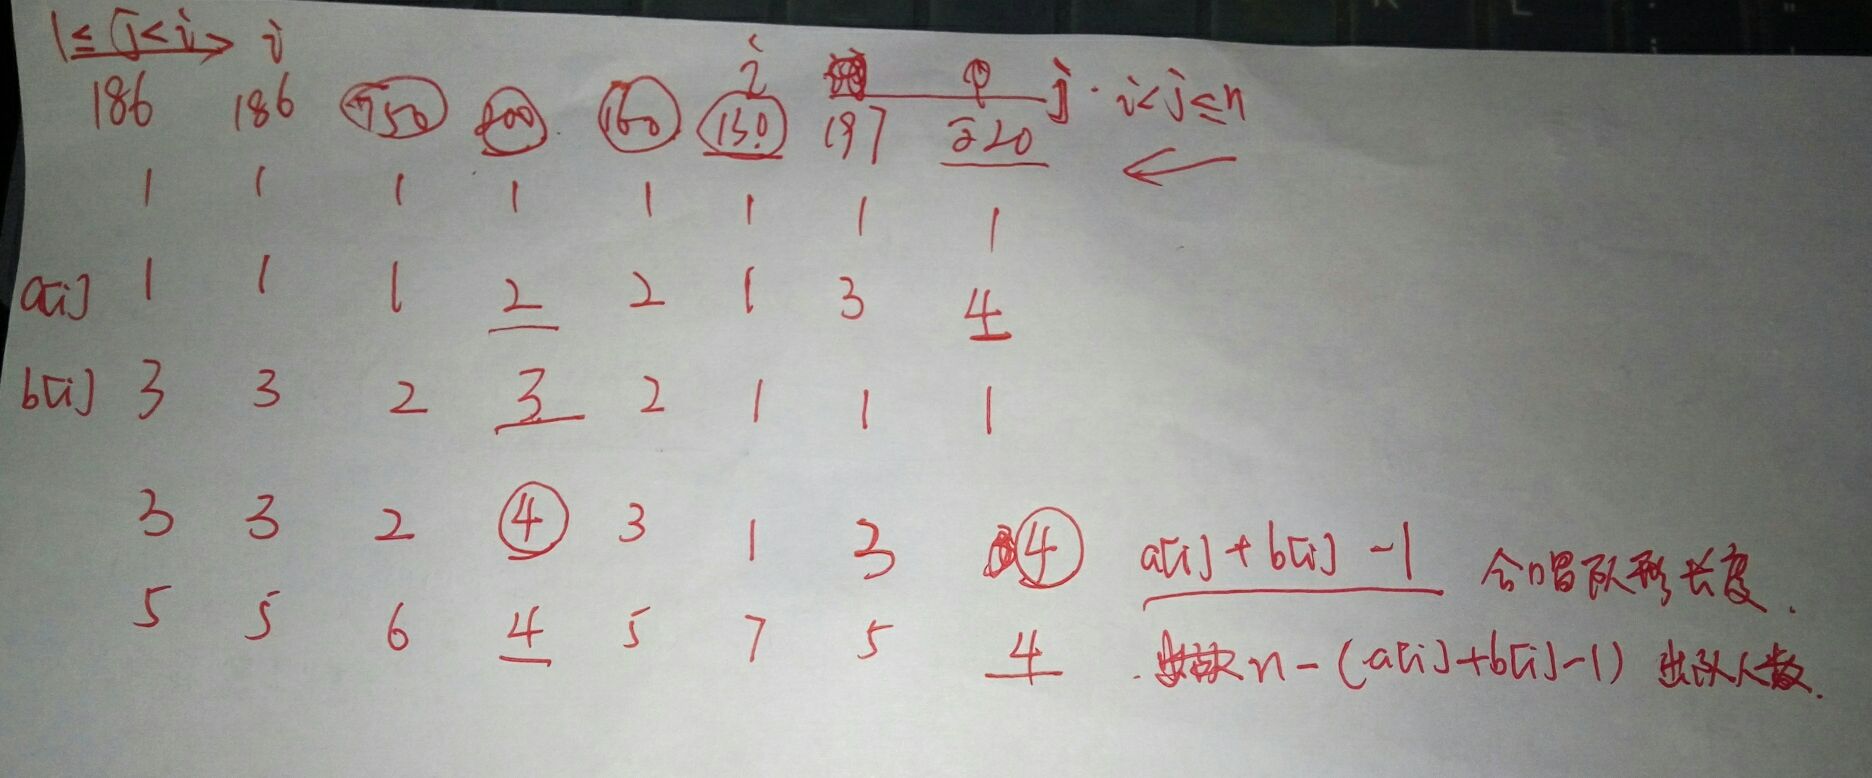 1≤ j<i i
i j · i<j≤n
186 186 150 200 160 130 197 220
1 1 1 1 1 1 1 1
a[i] 1 1 1 2 2 1 3 4
b[i] 3 3 2 3 2 1 1 1
3 3 2 4 3 1 3 4 a[i]+b[i]-1 合唱队形长度.
5 5 6 4 5 7 5 4 n-(a[i]+b[i]-1) 出队人数.